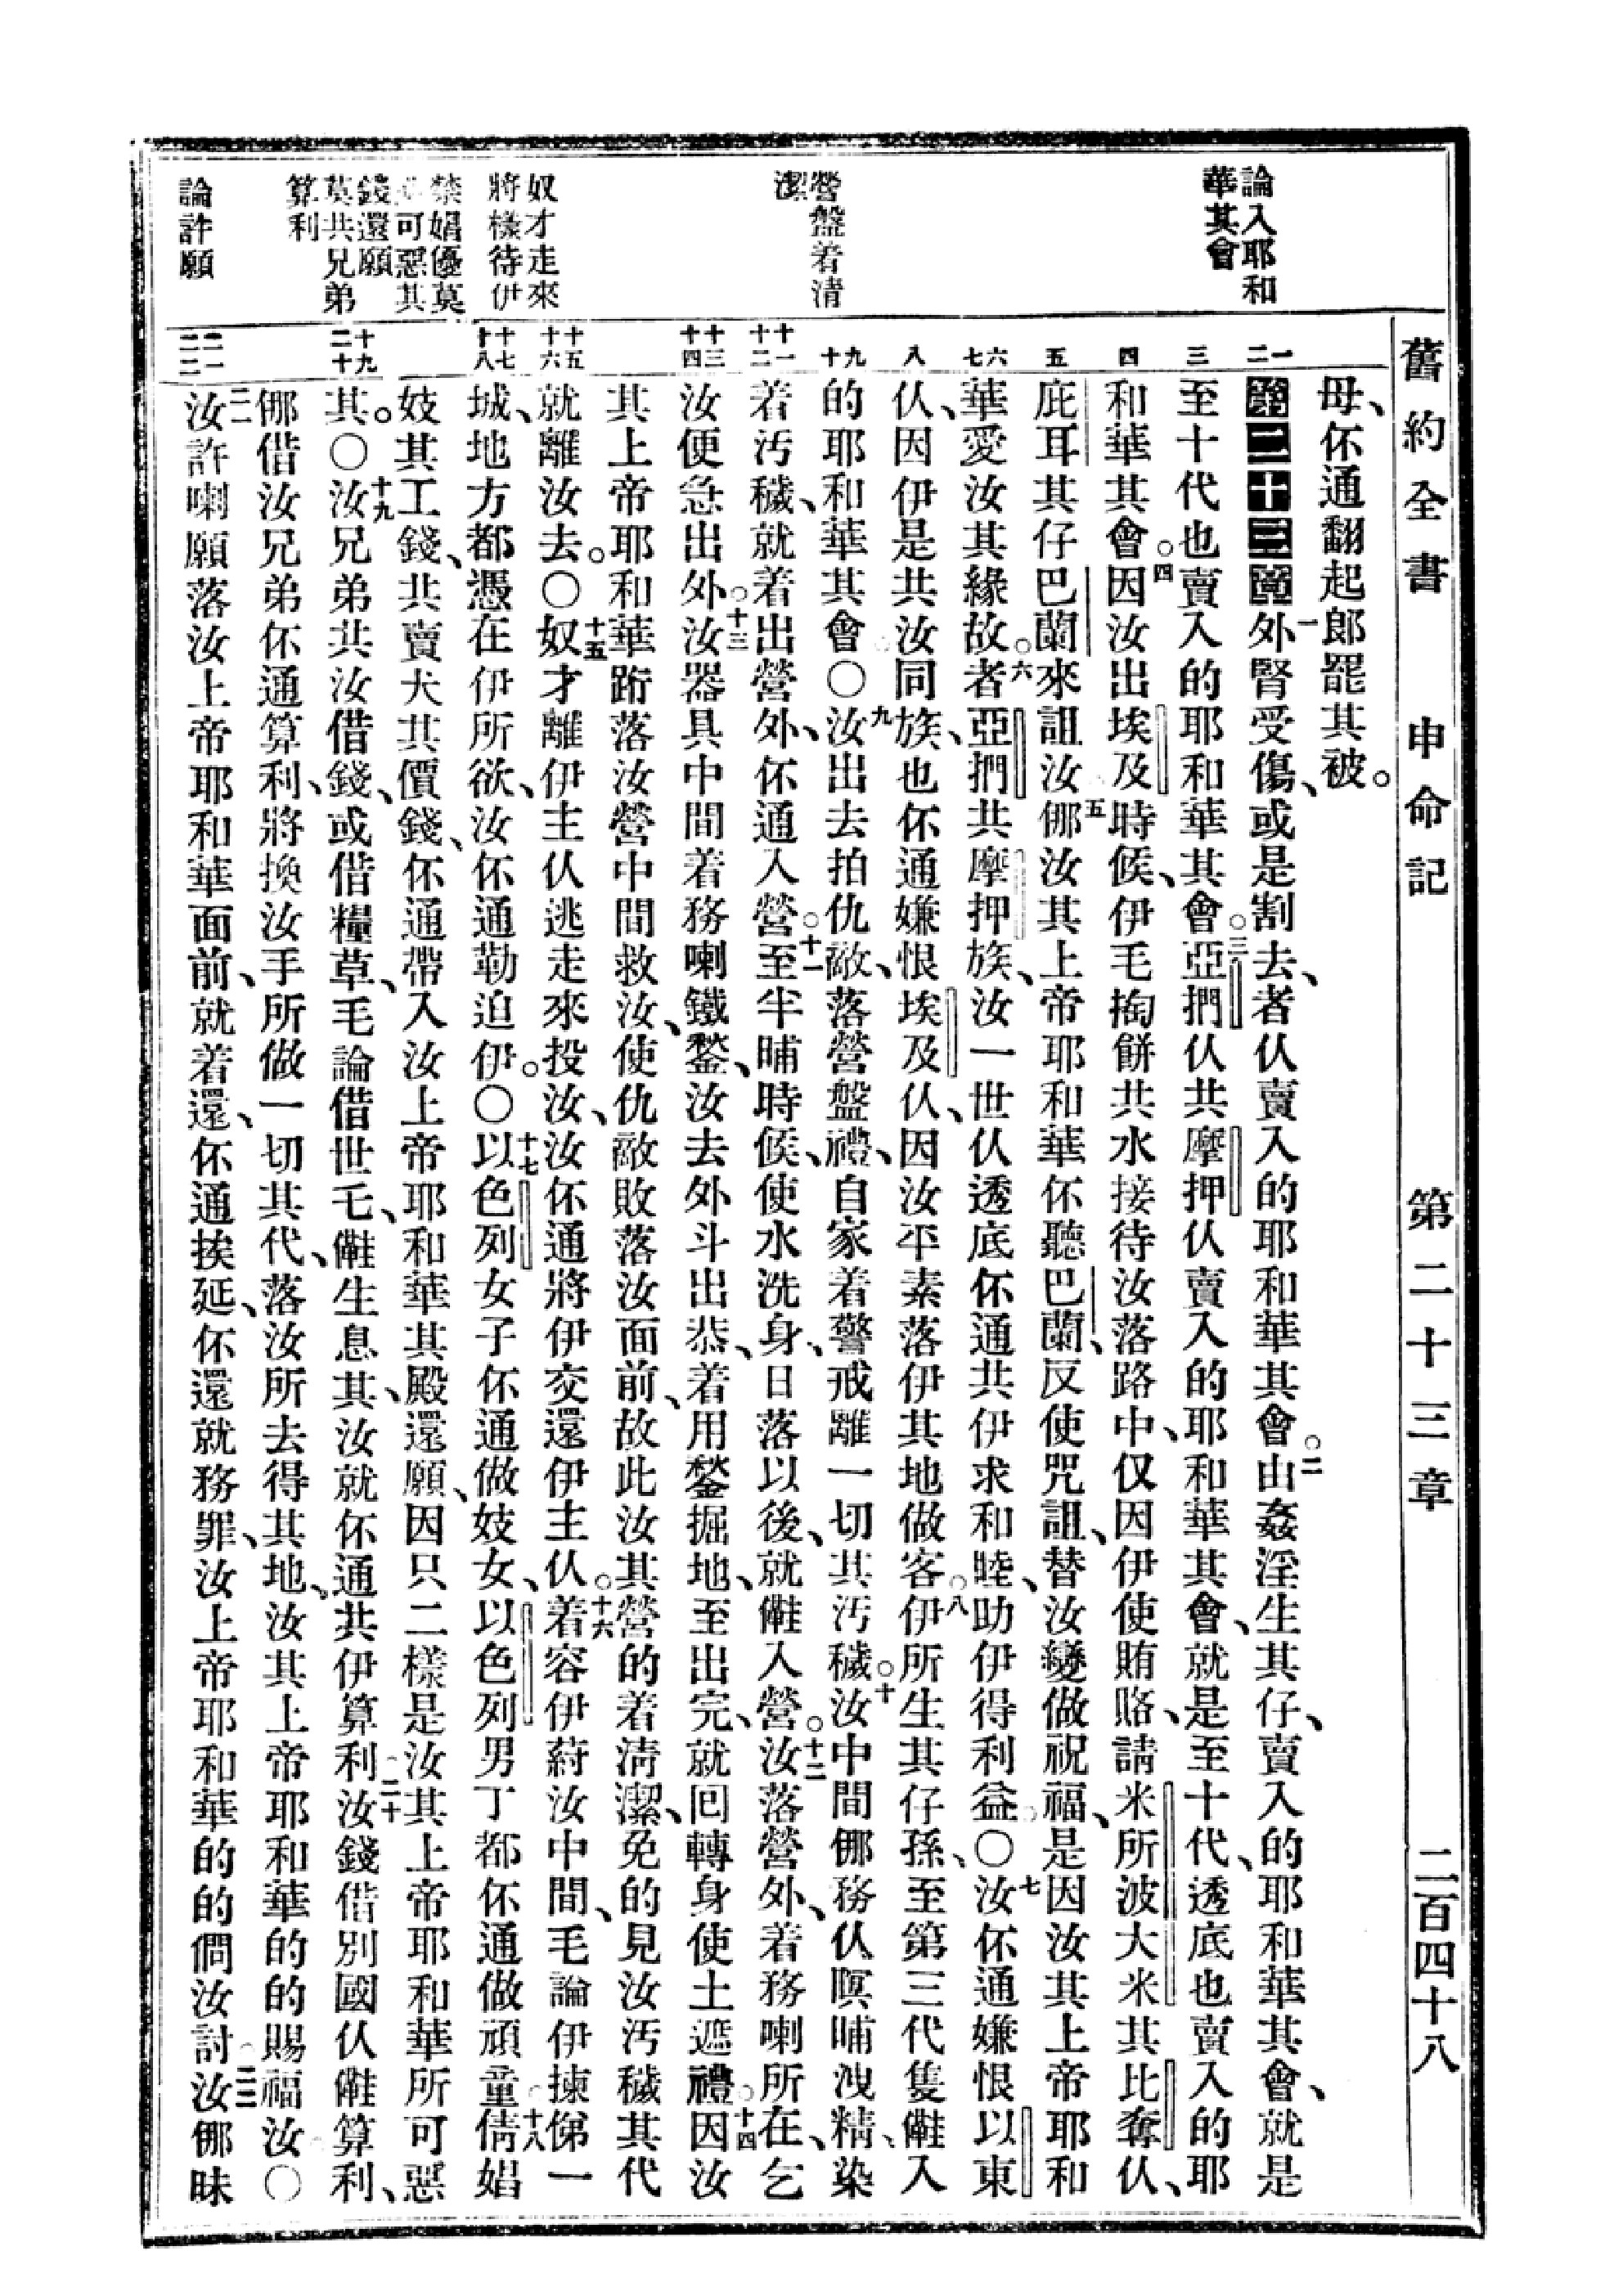 舊約全書　申命記　第二十三章　二百四十八
論入耶和
華其會
營盤着清
潔
奴才走來
將樣待伊
禁娼優莫
可惡其
錢還願
莫共兄弟
算利
論許願
母、伓通翻起郎罷其被。
第二十三章一外腎受傷、或是割去、者仈賣入的耶和華其會。二由姦淫生其仔、賣入的耶和華其會、就是
至十代也賣入的耶和華其會。三亞捫仈共摩押仈賣入的耶和華其會、就是至十代、透底也賣入的耶
和華其會。四因汝出埃及時候、伊毛掏餅共水接待汝落路中、仅因伊使賄賂、請米所波大米其比奪仈、
庇耳其仔巴蘭來詛汝五倻汝其上帝耶和華伓聽巴蘭、反使咒詛、替汝變做祝福、是因汝其上帝耶和
華愛汝其緣故。六者亞捫共摩押族、汝一世仈透底伓通共伊求和睦、助伊得利益。〇七汝伓通嫌恨以東
仈、因伊是共汝同族、也伓通嫌恨埃及仈、因汝平素落伊其地做客。八伊所生其仔孫、至第三代隻儺入
的耶和華其會〇九汝出去拍仇敵、落營盤禮、自家着警戒離一切其污穢。十汝中間倻務仈暝晡洩精、染
着污穢、就着出營外、伓通入營。十一至半晡時候、使水洗身、日落以後、就儺入營。十二汝落營外、着務喇所在、乞
汝便急出外。十三汝器具中間着務喇鐵鍫、汝去外斗出恭、着用鍫掘地、至出完、就囘轉身使土遮禮。十四因汝
其上帝耶和華跀落汝營中間救汝、使仇敵敗落汝面前、故此汝其營的着清潔、免的見汝污穢其代
就離汝去。〇十五奴才離伊主仈逃走來投汝、汝伓通將伊交還伊主仈。十六着容伊蒔汝中間、毛論伊揀俤一
城、地方都憑在伊所欲、汝伓通勒迫伊。〇十七以色列女子伓通做妓女、以色列男丁都伓通做頑童。十八倩娼
妓其工錢、共賣犬其價錢、伓通帶入汝上帝耶和華其殿還願、因只二樣是汝其上帝耶和華所可惡
其。〇十九汝兄弟共汝借錢、或借糧草、毛論借世乇、儺生息其、汝就伓通共伊算利。二十汝錢借別國仈儺算利、
倻借汝兄弟伓通算利、將換汝手所做一切其代、落汝所去得其地、汝其上帝耶和華的的賜福汝〇
二一汝許喇願落汝上帝耶和華面前、就着還、伓通挨延、伓還就務罪、汝上帝耶和華的的倜汝討。二二汝倻昧